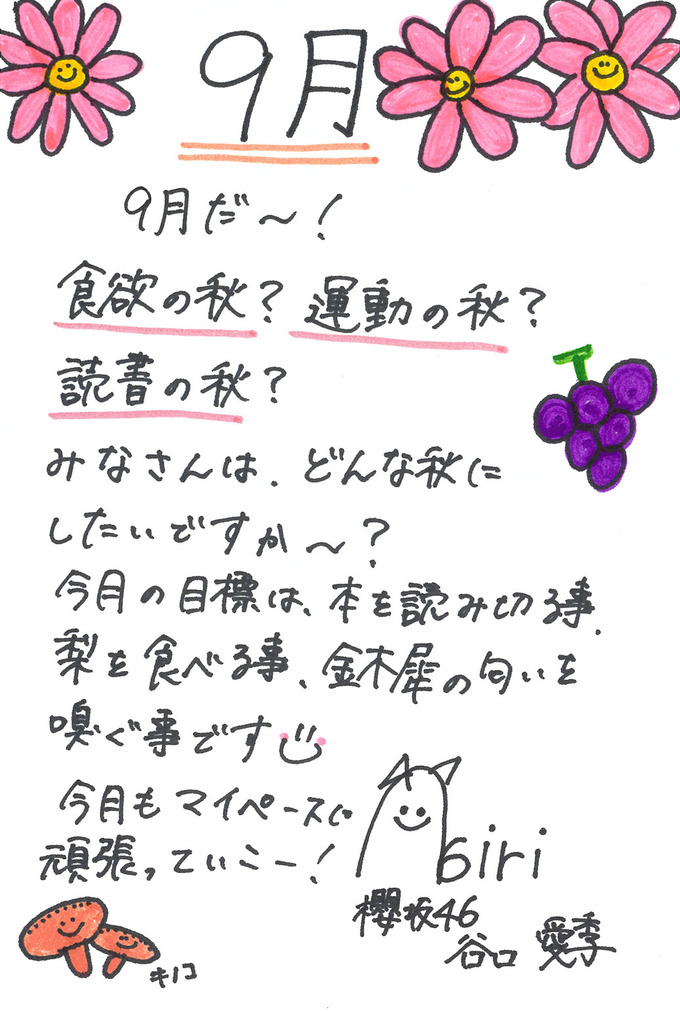 9月
9月だ〜!
食欲の秋? 運動の秋?
読書の秋?
みなさんは、どんな秋に
したいですか〜?
今月の目標は、本を読み切る事、
梨を食べる事、金木犀の匂いを
嗅ぐ事です
今月もマイペースに
頑張っていこー!
airi
櫻坂46
谷口 愛季
キノコ